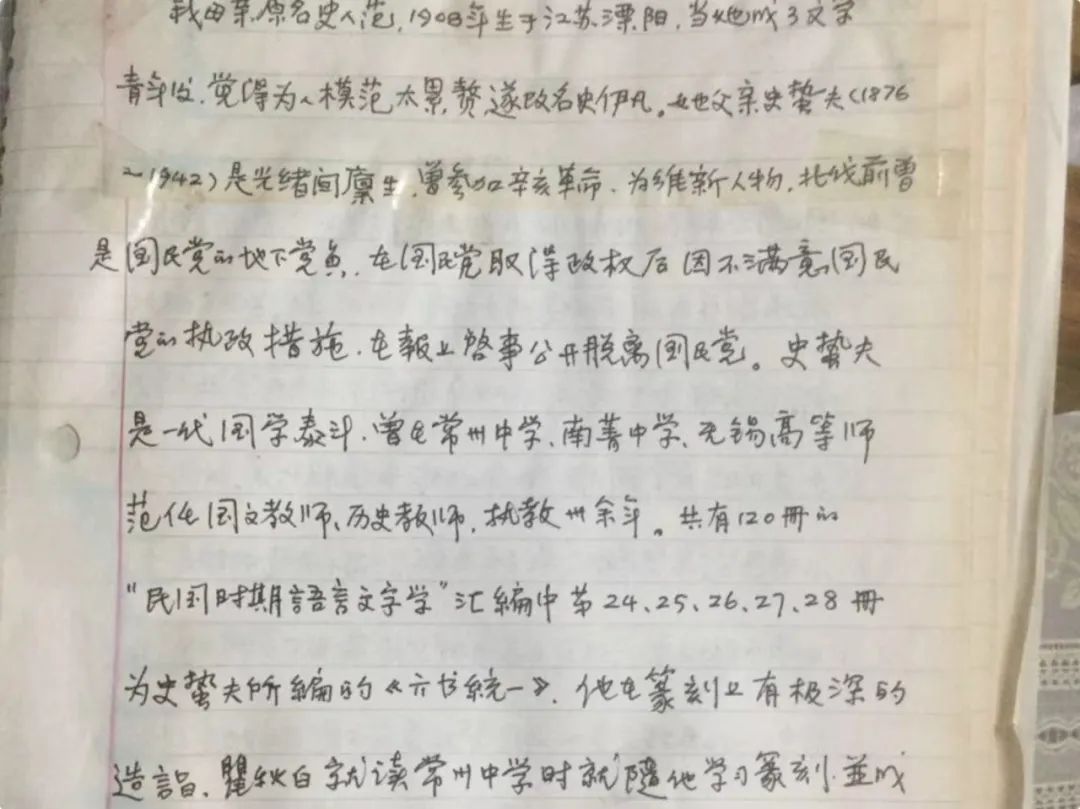 我母亲原名史人范，1908年生于江苏溧阳，当她成了文学
青年后，觉得为人模范太累赘遂改名史伊凡。她父亲史蛰夫（1876
～1942）是光绪间廪生，曾参加辛亥革命，为维新人物，北伐前曾
是国民党的地下党员，在国民党取得政权后因不满意国民
党的执政措施，在報上啓事公开脱离国民党。史蛰夫
是一代国学泰斗，曾在常州中学、南菁中学、无锡高等师
范任国文教师、历史教师，执教卅余年。共有120冊的
“民国时期語言文字学”汇編中第24、25、26、27、28冊
为史蛰夫所編的《六书統一》，他在篆刻上有极深的
造詣，瞿秋白就读常州中学时就隨他学习篆刻，並成